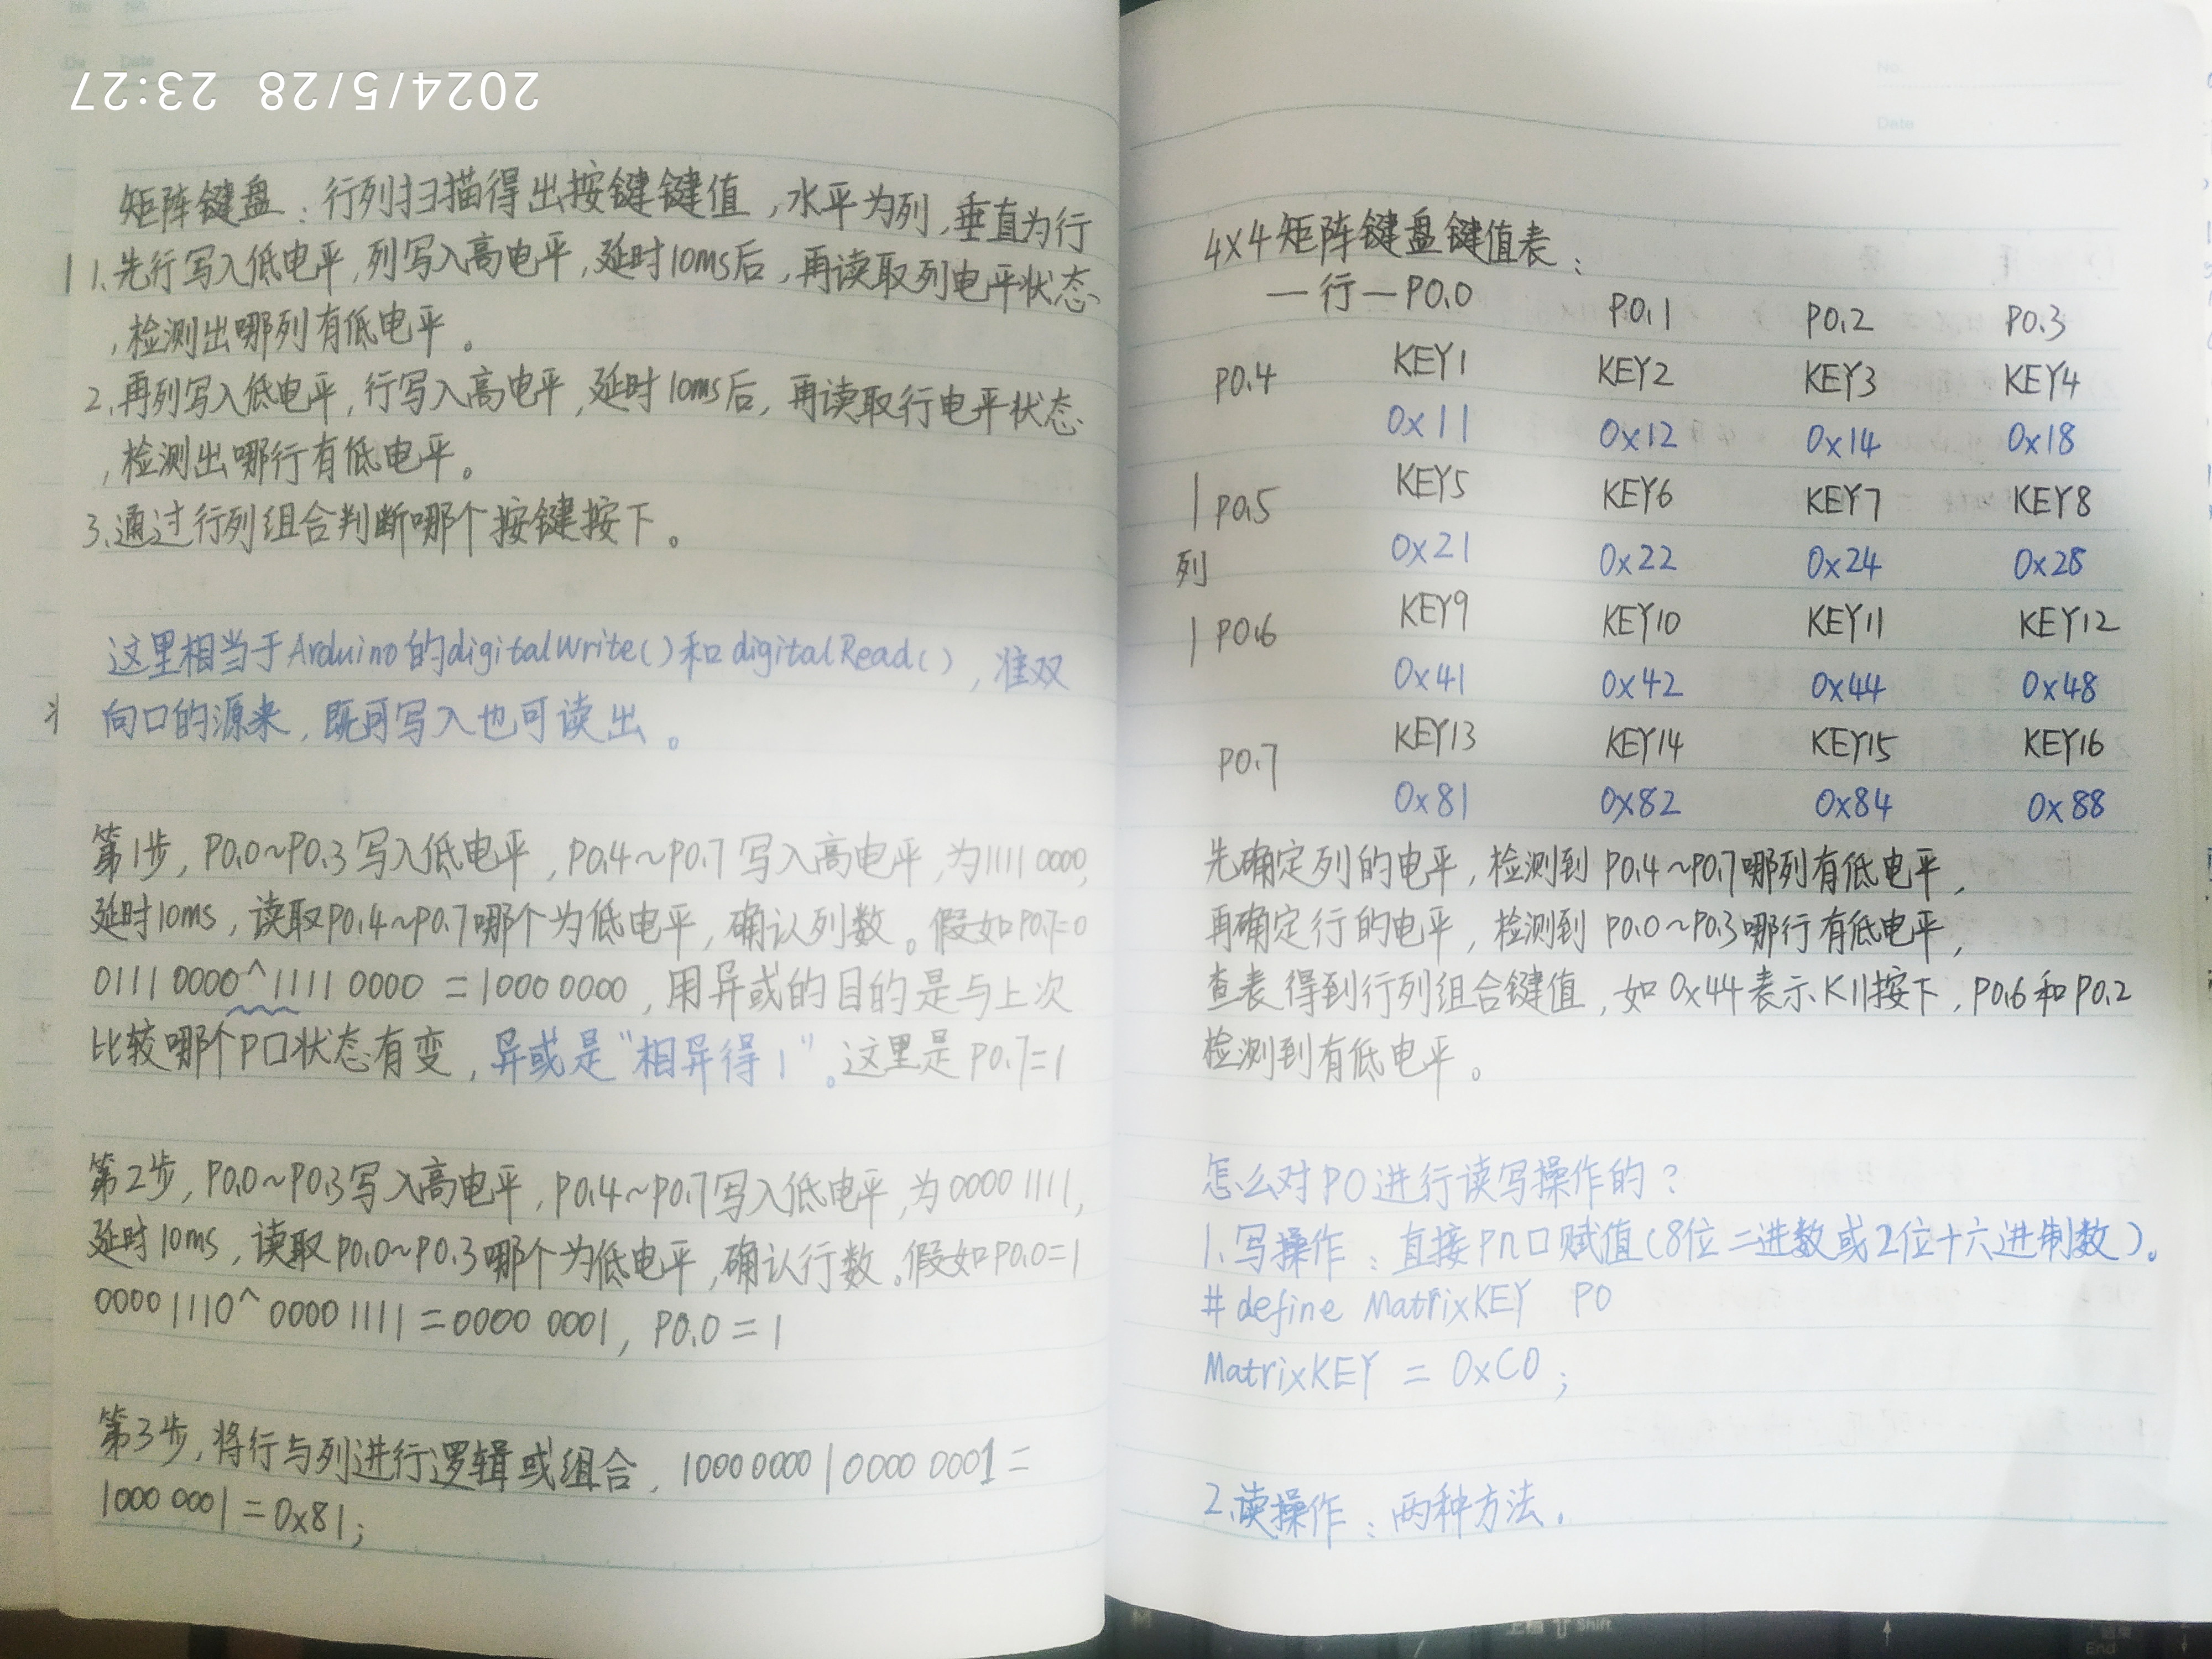 2024/5/28 23:27
矩阵键盘：行列扫描得出按键键值，水平为列，垂直为行
1.先行写入低电平，列写入高电平，延时10ms后，再读取列电平状态
，检测出哪列有低电平。
2.再列写入低电平，行写入高电平，延时10ms后，再读取行电平状态
，检测出哪行有低电平。
3.通过行列组合判断哪个按键按下。
这里相当于Arduino的digitalWrite()和digitalRead()，准双
向口的源来，既可写入也可读出。
第1步，P0.0~P0.3写入低电平，P0.4~P0.7写入高电平，为1111 0000，
延时10ms，读取P0.4~P0.7哪个为低电平，确认列数。假如P0.7=0
0111 0000^1111 0000=1000 0000，用异或的目的是与上次
比较哪个P口状态有变，异或是“相异得1”。这里是P0.7=1
第2步，P0.0~P0.3写入高电平，P0.4~P0.7写入低电平，为0000 1111，
延时10ms，读取P0.0~P0.3哪个为低电平，确认行数。假如P0.0=1
0000 1110^0000 1111=0000 0001，P0.0=1
第3步，将行与列进行逻辑或组合，1000 0000|0000 0001=
1000 0001=0x81；
4X4矩阵键盘键值表：
—行—P0.0 P0.1 P0.2 P0.3
P0.4 KEY1 KEY2 KEY3 KEY4
0x11 0x12 0x14 0x18
P0.5 KEY5 KEY6 KEY7 KEY8
列 0x21 0x22 0x24 0x28
P0.6 KEY9 KEY10 KEY11 KEY12
0x41 0x42 0x44 0x48
P0.7 KEY13 KEY14 KEY15 KEY16
0x81 0x82 0x84 0x88
先确定列的电平，检测到P0.4~P0.7哪列有低电平，
再确定行的电平，检测到P0.0~P0.3哪行有低电平，
查表得到行列组合键值，如0x44表示K11按下，P0.6和P0.2
检测到有低电平。
怎么对P0进行读写操作的？
1.写操作：直接Pn口赋值(8位二进数或2位十六进制数)。
#define MatrixKEY P0
MatrixKEY = 0xC0；
2.读操作：两种方法.